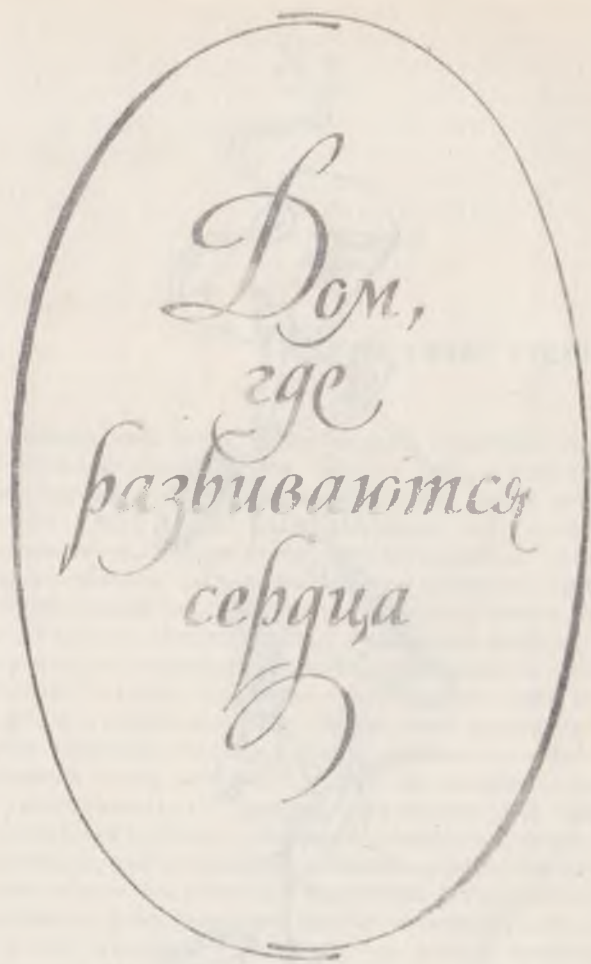 Дом,
где
разбиваются
сердца